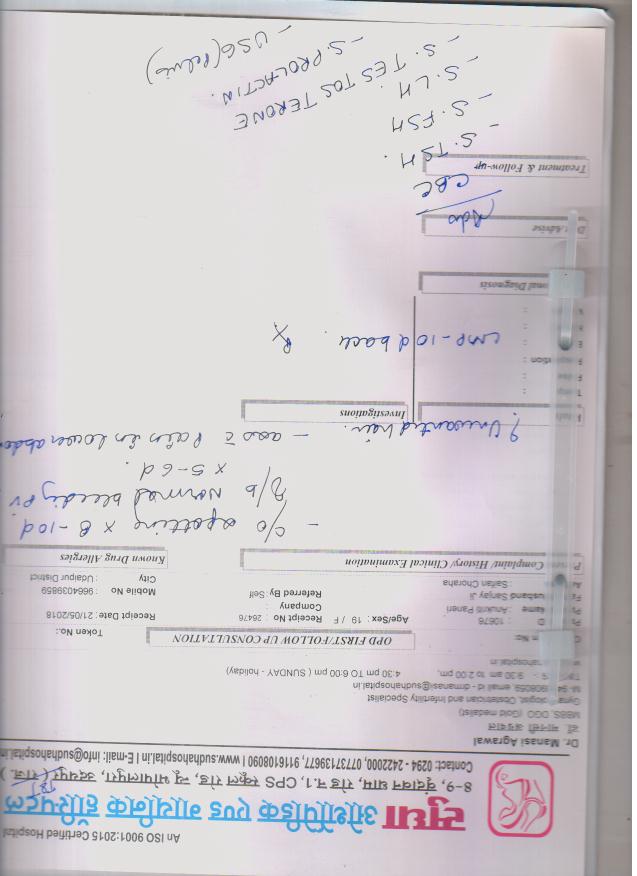 An ISO 9001:2015 Certified Hospital
सुधा ऑर्थोपेडिक एण्ड गायनिक हॉस्पिटल
8-9, वृंदावन धाम, रोड न.1, CPS स्कूल रोड, न्यू भोपालपुरा, उदयपुर ( राज. )
Contact: 0294 - 2422000, 07737139677, 9116108090 | www.sudhahospital.in | E-mail: info@sudhahospital.in
Dr. Manasi Agrawal
डॉ. मानसी अग्रवाल
MBBS, DGO (Gold medalist)
Gynaecologist, Obstetrician and Infertility Specialist
email id - drmanasi@sudhahospital.in
9:30 am to 2:00 pm, 4:30 pm TO 6:00 pm ( SUNDAY - holiday)
OPD FIRST/FOLLOW UP CONSULTATION
Token No.:
D : 10676
Age/Sex: 19 / F
Receipt No : 26476
Receipt Date: 21/05/2018
Name : Ankriti Paneri
Company :
Mobile No : 9664039859
usband Sanjay Ji
Referred By: Self
City : Udaipur District
: Saitan Choraha
Complaint/ History/ Clinical Examination
Known Drug Allergies
- c/o spotting x 8-10d
Normal bleeding PV
x 5-6 d.
- asso c̄ Pain in Lower abdo
? Unwanted hair.
Investigations
LMP - 10d back.
Rx
onal Diagnosis
Advise
Adv
CBC
Treatment & Follow-up
- S. TSH.
- S. FSH
- S. LH.
- S. TESTOSTERONE
- S. PROLACTIN.
- USG (Pelvis)